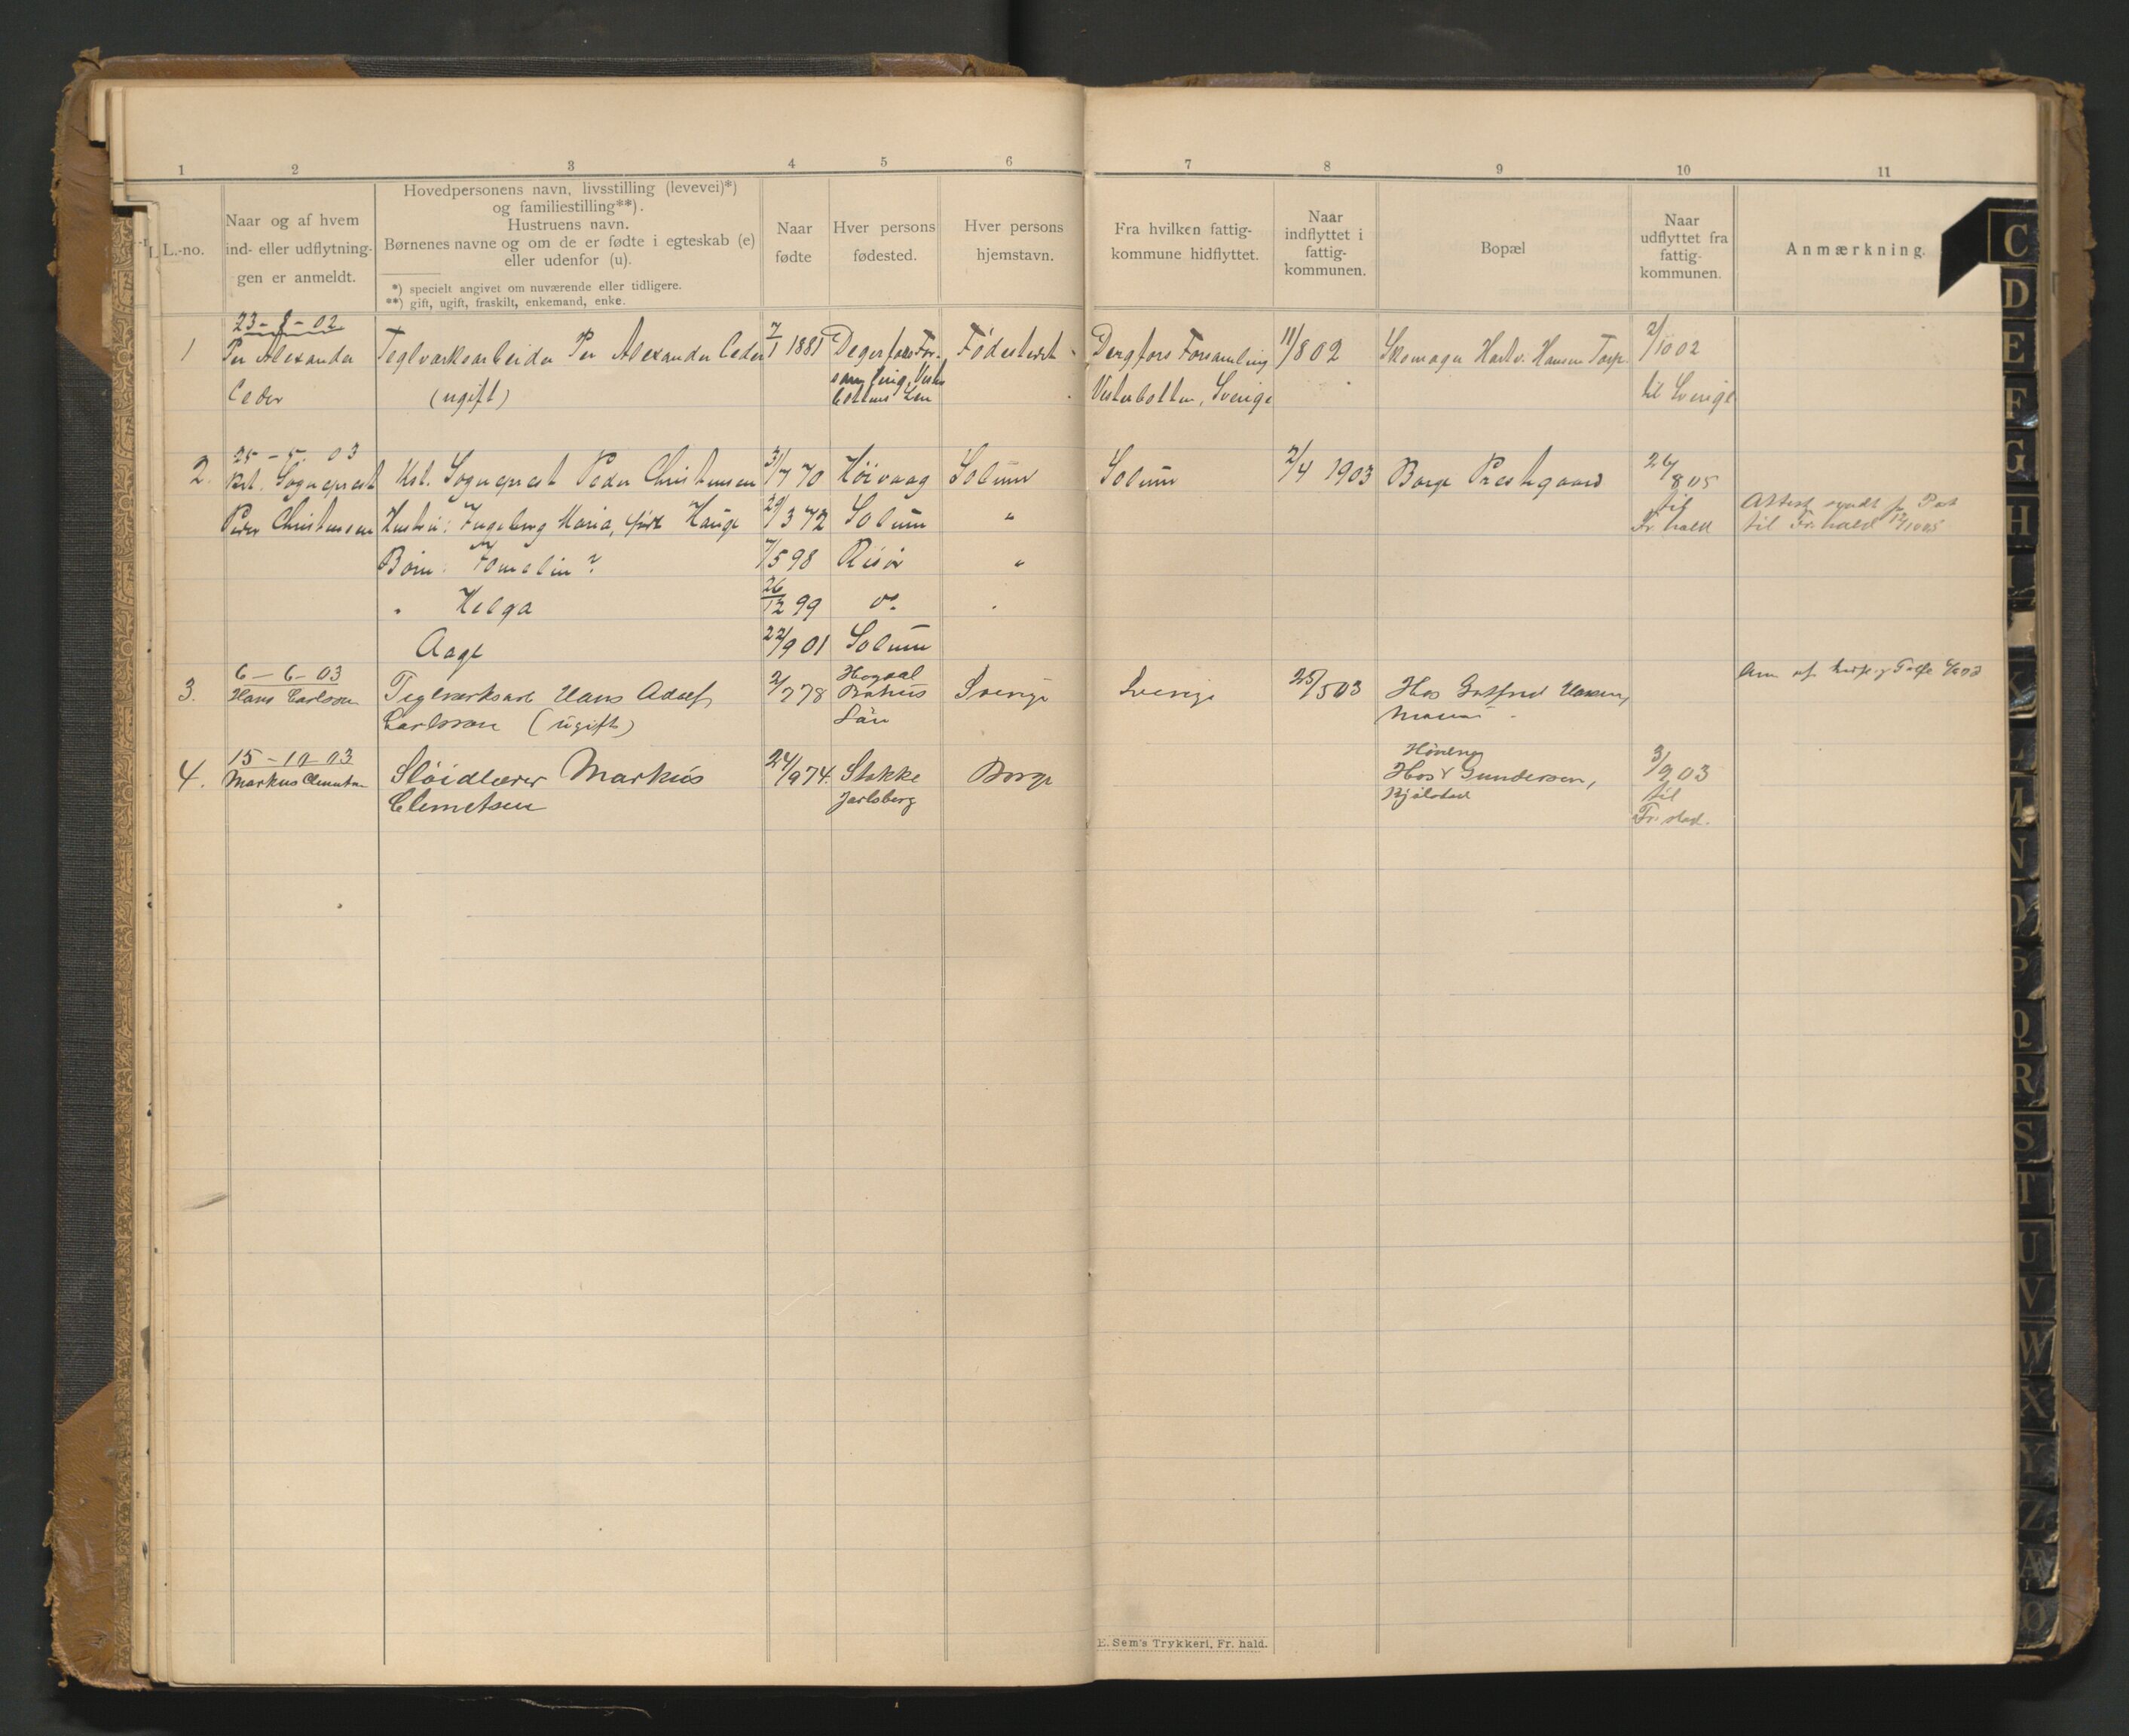 1 2 3 4 5 6 7 8 9 10 11
L.-no.
Naar og af hvem
ind- eller udflytnin-
gen er anmeldt.
Hovedpersonens navn, livsstilling (levevei)*)
og familiestilling**).
Hustruens navn.
Børnenes navne og om de er fødte i egteskab (e)
eller udenfor (u).
*) specielt angivet om nuværende eller tidligere.
**) gift, ugift, fraskilt, enkemand, enke.
Naar
fødte
Hver persons
fødested.
Hver persons
hjemstavn.
Fra hvilken fattig-
kommune hidflyttet.
Naar
indflyttet i
fattig-
kommunen.
Bopæl
Naar
udflyttet fra
fattig-
kommunen.
Anmærkning.
23-8-02
1 Per Alexander Teglværksarbeider Per Alexander Ceder 7/1 1881 Degerfors For- Fødestedet Degfors Forsamling 11/8 02 Skomager Hartv. Hansen Torp 2/10 02
Ceder (ugift) samling, Vester bottens Len Vesterbotten, Sverige til Sverige
25-5-03
2. Kst. Sogneprest Kst. Sogneprest Peder Christensen 31/7 70 Höivaag Solum Solum 2/4 1903 Borge Prestegaard 26/8 05
Peder Christensen Hustru: Ingeborg Maria, født Hauge 29/3 72 Solum " til Fr.hald Attest sendt til Fr.hald 12/10 05
Børn: 7/5 98 Risör "
" Helga 26/12 99 do
Aage 22/9 01 Solum
6-6-03
3. Hans Carlsson Teglværksarb Hans Adolf 2/7 78 Bohus Sverige Sverige 25/5 03 Hos Gotfred Hansen,
Carlsson (ugift) Län
15-10-03
4. Markus Clemetsen Sløidlærer Markus 24/9 74. Stokke Borge Hos Gundersen, 3/9 03
Clemetsen Jarlsberg Kjølstad til
Fr.stad.
E. Sem's Trykkeri, Fr. hald.
C
D
E
F
G
H
I
K
L
M
N
O
P
Q
R
S
T
U
V
W
X
Y
Z
Æ
Ø